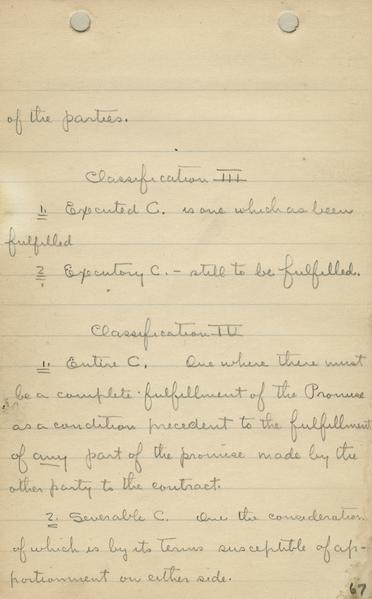 of the parties.
Classification III
1. Executed C. is one which as been
fulfilled
2 Executory C. - still to be fulfilled.
Classification IV
1. Entire C. One where there must
be a complete fulfillment of the Promise
as a condition precedent to the fulfillment
of any part of the promise made by the
other party to the contract.
2. Severable C. One the consideration
of which is by its terms susceptible of ap-
portionment on either side.
67